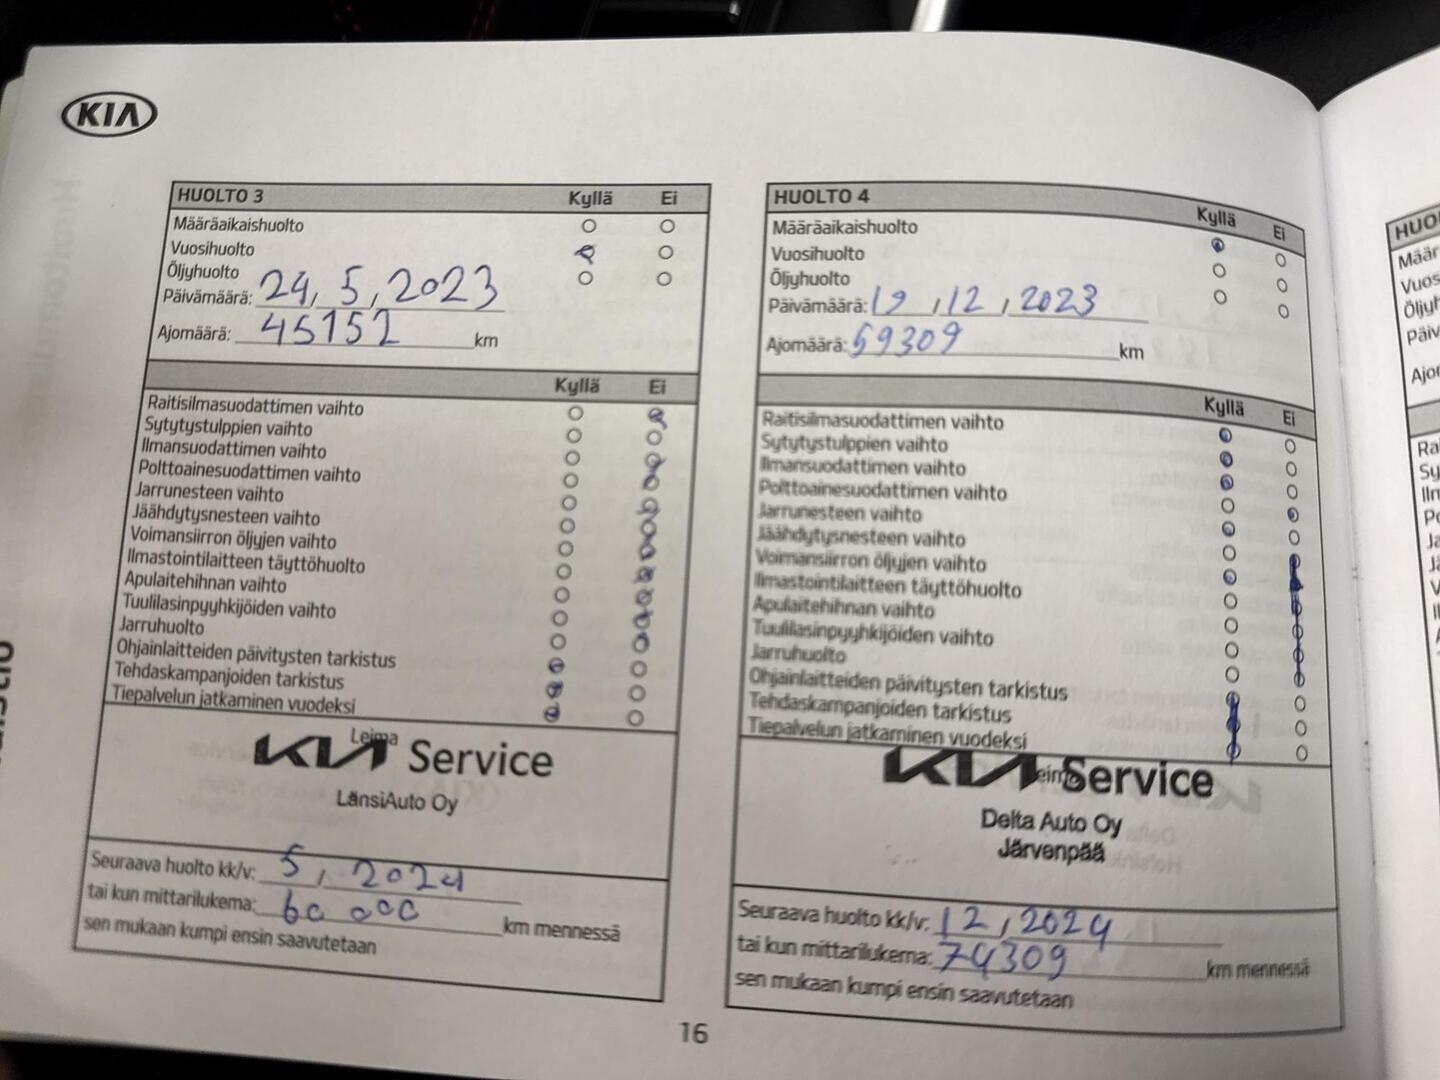 KIA
HUOLTO 3 Kyllä Ei
Määräaikaishuolto
Vuosihuolto
Öljyhuolto
Päivämäärä: 24, 5, 2023
Ajomäärä: 45152 km
Kyllä Ei
Raitisilmasuodattimen vaihto
Sytytystulppien vaihto
Ilmansuodattimen vaihto
Polttoainesuodattimen vaihto
Jarrunesteen vaihto
Jäähdytysnesteen vaihto
Voimansiirron öljyjen vaihto
Ilmastointilaitteen täyttöhuolto
Apulaitehihnan vaihto
Tuulilasinpyyhkijöiden vaihto
Jarruhuolto
Ohjainlaitteiden päivitysten tarkistus
Tehdaskampanjoiden tarkistus
Tiepalvelun jatkaminen vuodeksi
Leima
KIA Service
LänsiAuto Oy
Seuraava huolto kk/v: 5, 2024
tai kun mittarilukema: 60 000 km mennessä
sen mukaan kumpi ensin saavutetaan
HUOLTO 4 Kyllä Ei
Määräaikaishuolto
Vuosihuolto
Öljyhuolto
Päivämäärä: 19, 12, 2023
Ajomäärä: 59309 km
Kyllä Ei
Raitisilmasuodattimen vaihto
Sytytystulppien vaihto
Ilmansuodattimen vaihto
Polttoainesuodattimen vaihto
Jarrunesteen vaihto
Jäähdytysnesteen vaihto
Voimansiirron öljyjen vaihto
Ilmastointilaitteen täyttöhuolto
Apulaitehihnan vaihto
Tuulilasinpyyhkijöiden vaihto
Jarruhuolto
Ohjainlaitteiden päivitysten tarkistus
Tehdaskampanjoiden tarkistus
Tiepalvelun jatkaminen vuodeksi
Leima
KIA Service
Delta Auto Oy
Järvenpää
Seuraava huolto kk/v: 12, 2024
tai kun mittarilukema: 74309 km mennessä
sen mukaan kumpi ensin saavutetaan
16